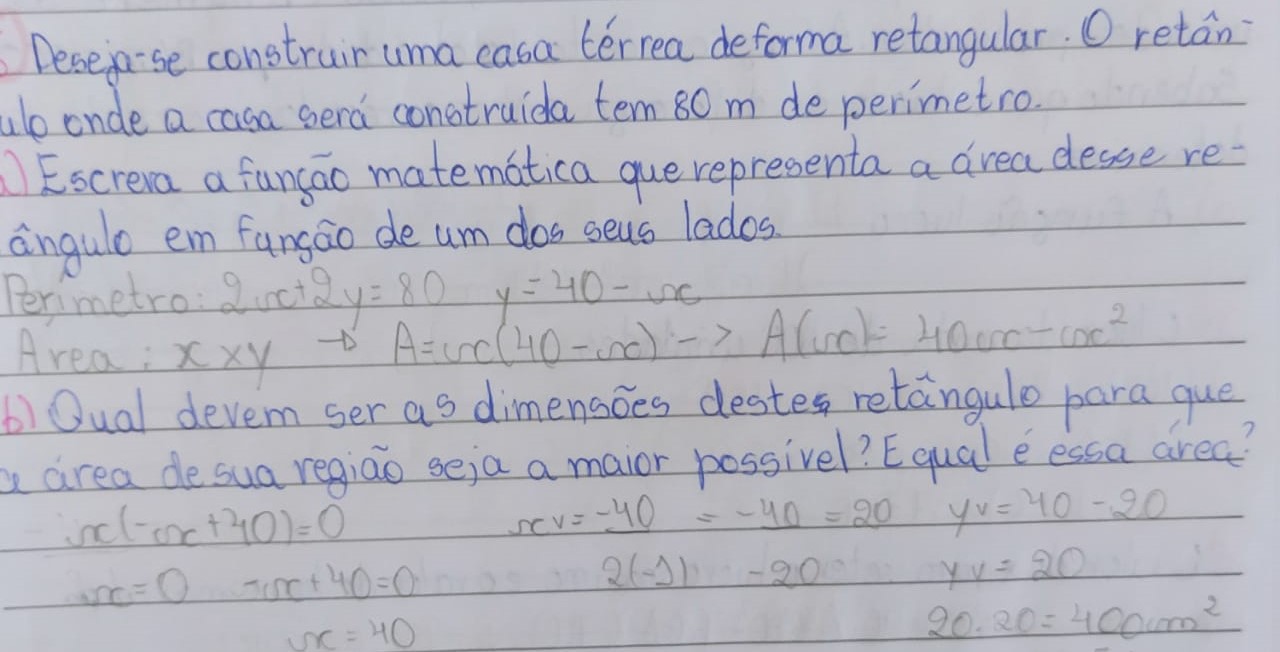 Deseja-se construir uma casa térrea de forma retangular. O retân-
ulo onde a casa será construída tem 80 m de perímetro.
a) Escreva a função matemática que representa a área desse re-
ângulo em função de um dos seus lados.
Perímetro: 2x+2y=80 y=40-x
Area: x×y → A=x(40-x) -> A(x)= 40x-x²
b) Qual devem ser as dimensões destes retângulo para que
a área de sua região seja a maior possível? E qual é essa área?
x(-x+40)=0 xv=-40 = -40 = 20 yv=40-20
x=0 -x+40=0 2(-1) -20 yv=20
x=40 20.20=400m²